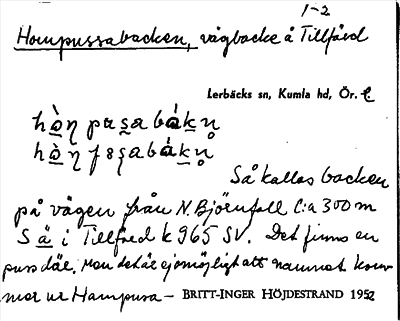 1-2
Hompussabacken, vägbacke å Tillfäed
Lerbäcks sn, Kumla hd, Ör. l.
hòn pusabákn̥
hòn
Så kallas backen
på vägen från N. Björnfall c:a 300 m
S ä i Tillfäed k 965 SV. Det finns en
puss däe, Men det är ej omöjligt att namnet kom-
mer ur Hampusa – BRITT-INGER HÖJDESTRAND 1952